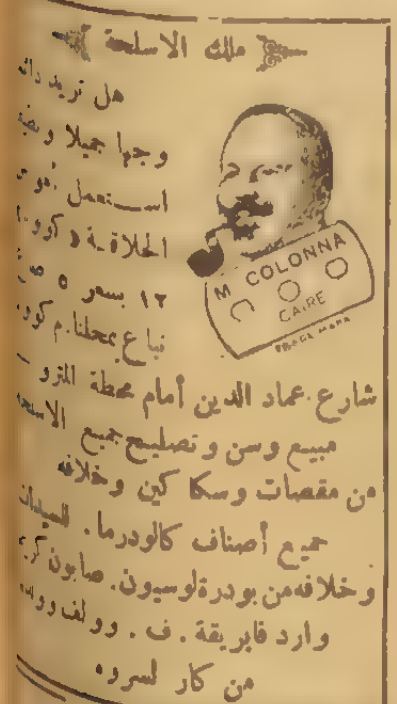 ملك الاسلحة
هل تريد
وجها جميلا
استعمل
الحلاقة
١٢ بسعر ٥
تباع بمحلنا . م
M COLONNA
CAIRE
شارع عماد الدين أمام محطة المترو
مبيع وسن وتصليح جميع
من مقصات وسكاكين وخلافه
جميع أصناف كالودرما . للسيدات
وخلافه من بودرة لوسيون . صابون
وارد فابريقة . ف . وولف
من كار لسروه